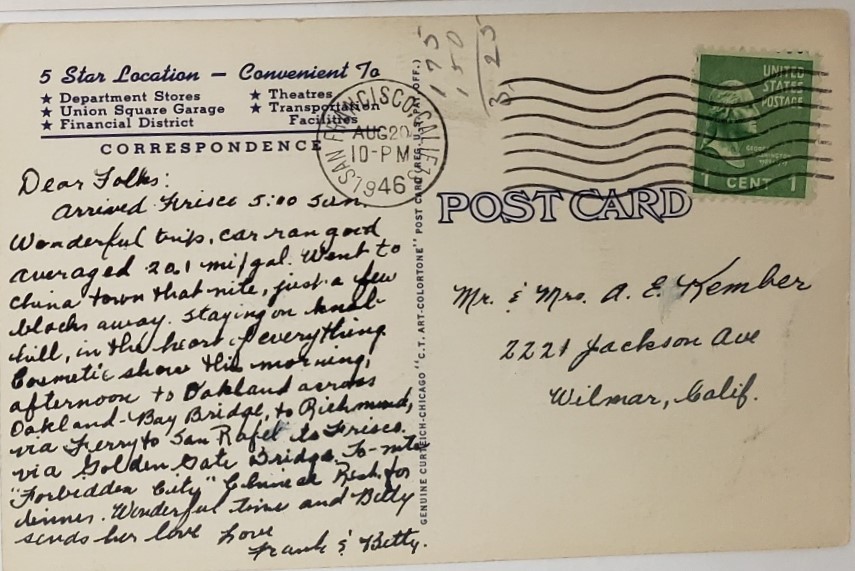 5 Star Location — Convenient To
★ Department Stores
★ Union Square Garage
★ Financial District
★ Theatres
★ Transportation
Facilities
CORRESPONDENCE
Dear Folks:
Arrived Frisco 5:00 Sun.
Wonderful trip, car ran good
averaged 20.1 mi/gal. Went to
china town that nite, just a few
blocks away. Staying on knob-
hill, in the heart of everything
Cosmetic show this morning,
afternoon to Oakland across
Oakland-Bay Bridge, to Richmond,
via Ferry to San Rafel to Frisco.
via Golden Gate Bridge. To-nite
"Forbidden City" Chinese Rest. for
dinner. Wonderful time and Betty
sends her love Love
Frank & Betty.
GENUINE CURTEICH-CHICAGO "C.T. ART-COLORTONE" POST CARD (REG. U.S. PAT. OFF.)
175
150
3.25
SAN FRANCISCO, CALIF.
AUG 20
10-PM
1946
POST CARD
UNITED
STATES
POSTAGE
GEORGE
WASHINGTON
1 CENT 1
Mr. & Mrs. A. E. Kember
2221 Jackson Ave
Wilmar, Calif.